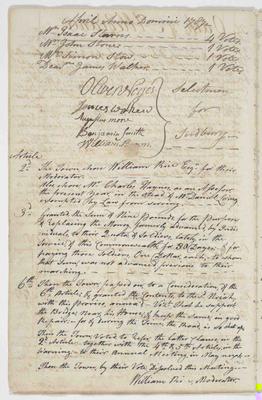 April Anno Domini 1787
Mr. Isaac Stearns 4 Votes
Mr. John Stones 1 Vote
Mr. Simon Stow 1 Vote
Deac. James Walker 1 Vote
Oliver Noyes
James Thompson
Augustus Moore
Benjamin Smith
William
Selectmen
for
Sudbury
Article
2d. The Town chose William Rice Esqr. for their
Moderator
Also chose Mr. Charles Haynes, as an Assessor for
the present Year in the Room of Mr. Daniel Loring
exempted by Law from serving
3d. Granted the Sum of Nine Pounds for the Purpose
of replacing the Money formerly advanced by Indi-
viduals, to their Assistance of Soldiers, lately in the
Service of this Commonwealth for 30 Days, & for
paying those Soldiers One Dollar, each, to whom
that Sum, was not advanced, previous to their
marching
6th. Then the Town passed on to a Consideration of the
6th. Article; & granted the Contents, to that Heird,
with this Proviso, (viz) Viz. That he support
the Bridge, near his House, & keep the same, in good
Repair, for & during the Time, the Road is so set up
Then the Town Voted to Refer the latter Clause, in the
2d. Article, together with the 4th & 5th Articles in the
Warning, to their Annual Meeting, in May next
Then the Town, by their Vote Dissolved this Meeting
William Rice Moderator